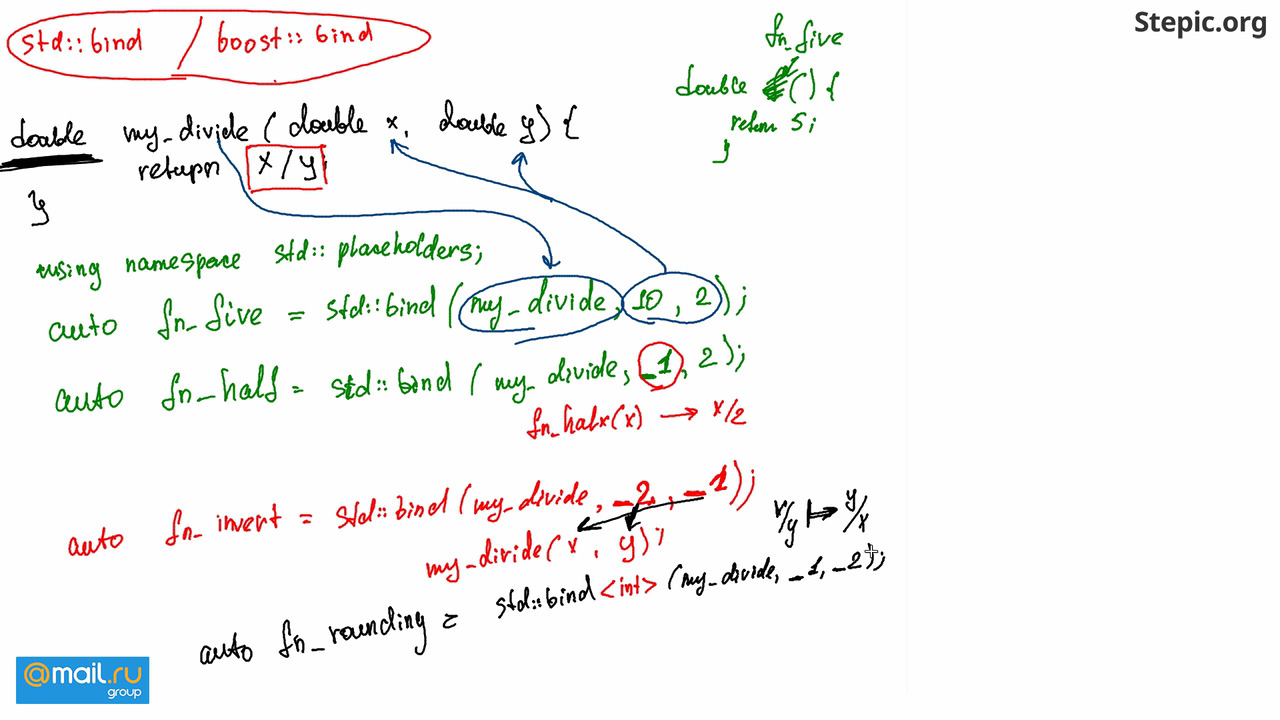 Stepic.org
std::bind / boost::bind
fn_five
double () {
return 5;
}
double my_divide ( double x, double y) {
return x/y
}
using namespace std::placeholders;
auto fn_five = std::bind (my_divide, 10, 2);
auto fn_half = std::bind ( my_divide, _1, 2);
fn_halx(x) → x/2
auto fn_invert = std::bind (my_divide, _2, _1);
my_divide(x, y);
x/y ↦ y/x
auto fn_rounding = std::bind <int> (my_divide, _1, _2);
@mail.ru
group